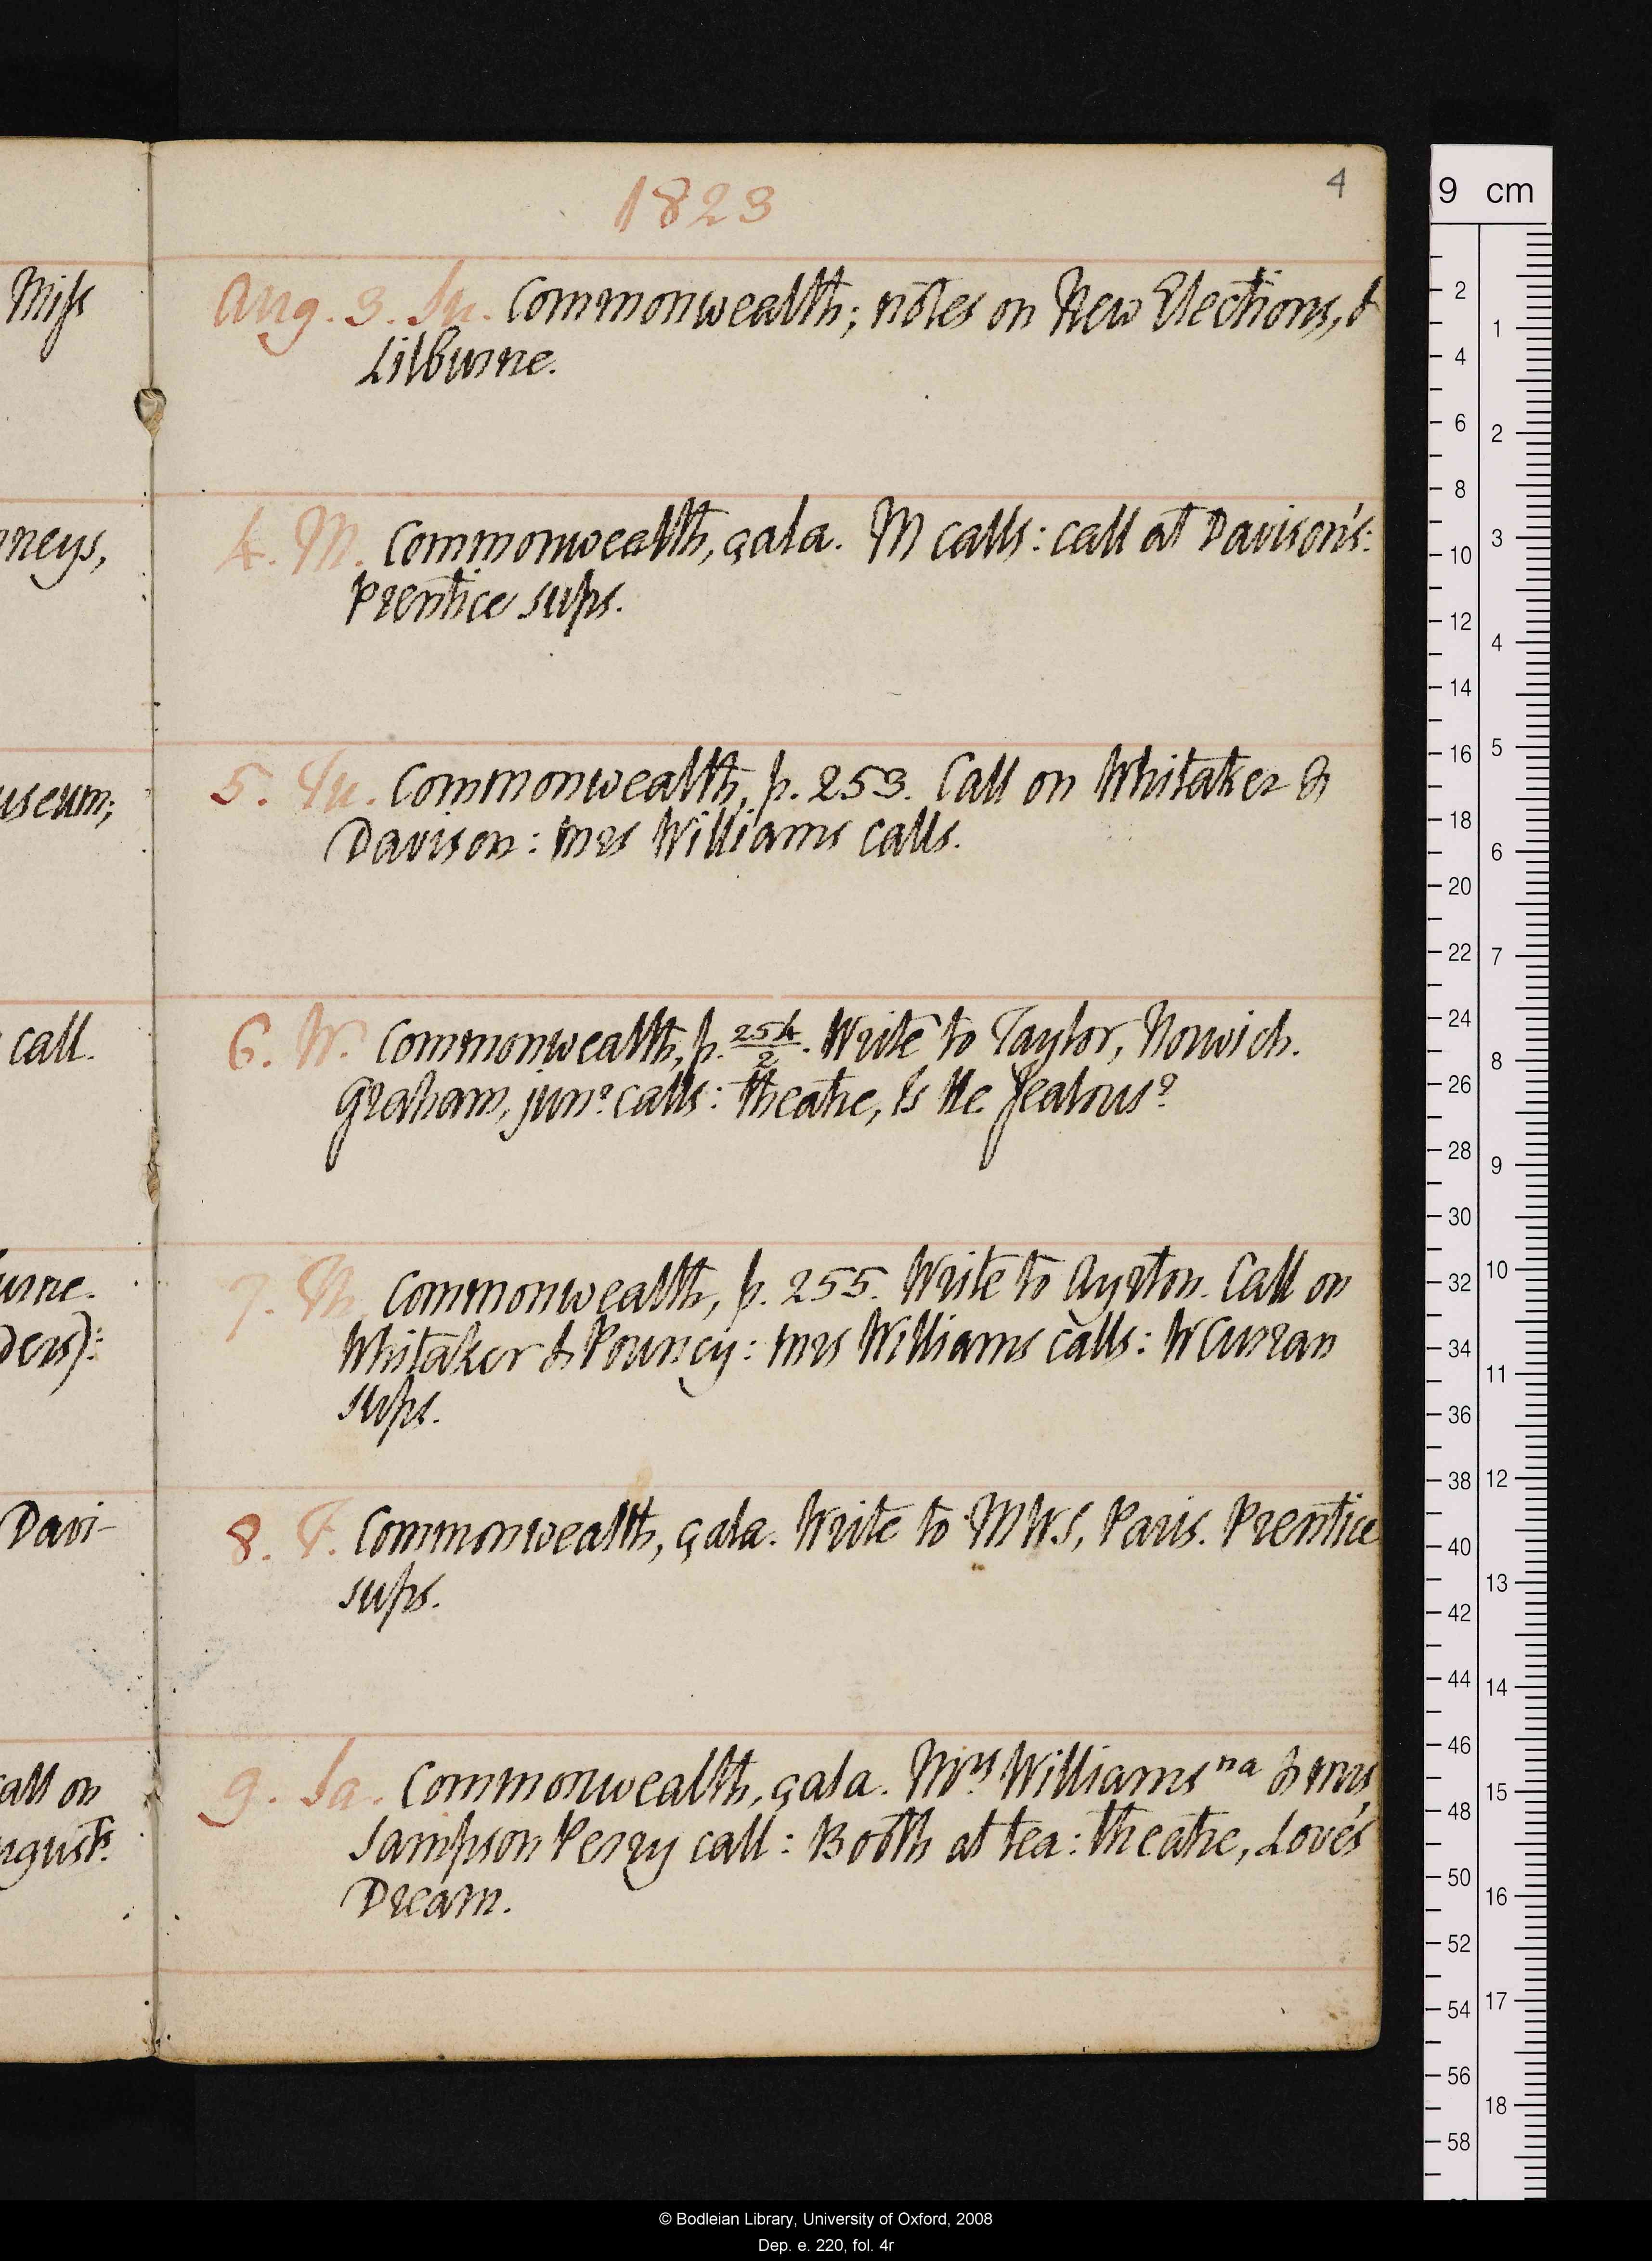 4
1823
Miſs
Aug. 3. Su. Commonwealth; notes on New Elections, &
Lilburne.
neys,
4. M. Commonwealth, çala. M calls: call at Davison's:
Prentice sups.
useum;
5. Tu. Commonwealth, p. 253. Call on Whitaker &
Davison: Mrs Williams calls.
call.
6. W. Commonwealth, p. 254/2. Write to Taylor, Norwich.
Graham, junr calls: theatre, Is He Jealous?
urne.
ders):
7. Th. Commonwealth, p. 255. Write to Ayrton. Call on
Whitaker & Pouncy: Mrs Williams calls: W Curran
sups.
Davi-
8. F. Commonwealth, çala. Write to MWS, Paris. Prentice
sups.
all on
ugusts.
9. Sa. Commonwealth, çala. Mrs Williams na & Mrs
Sampson Perry call: Booth at tea: theatre, Love's
Dream.
9 cm
2
4
6
8
10
12
14
16
18
20
22
24
26
28
30
32
34
36
38
40
42
44
46
48
50
52
54
56
58
1
2
3
4
5
6
7
8
9
10
11
12
13
14
15
16
17
18
© Bodleian Library, University of Oxford, 2008
Dep. e. 220, fol. 4r